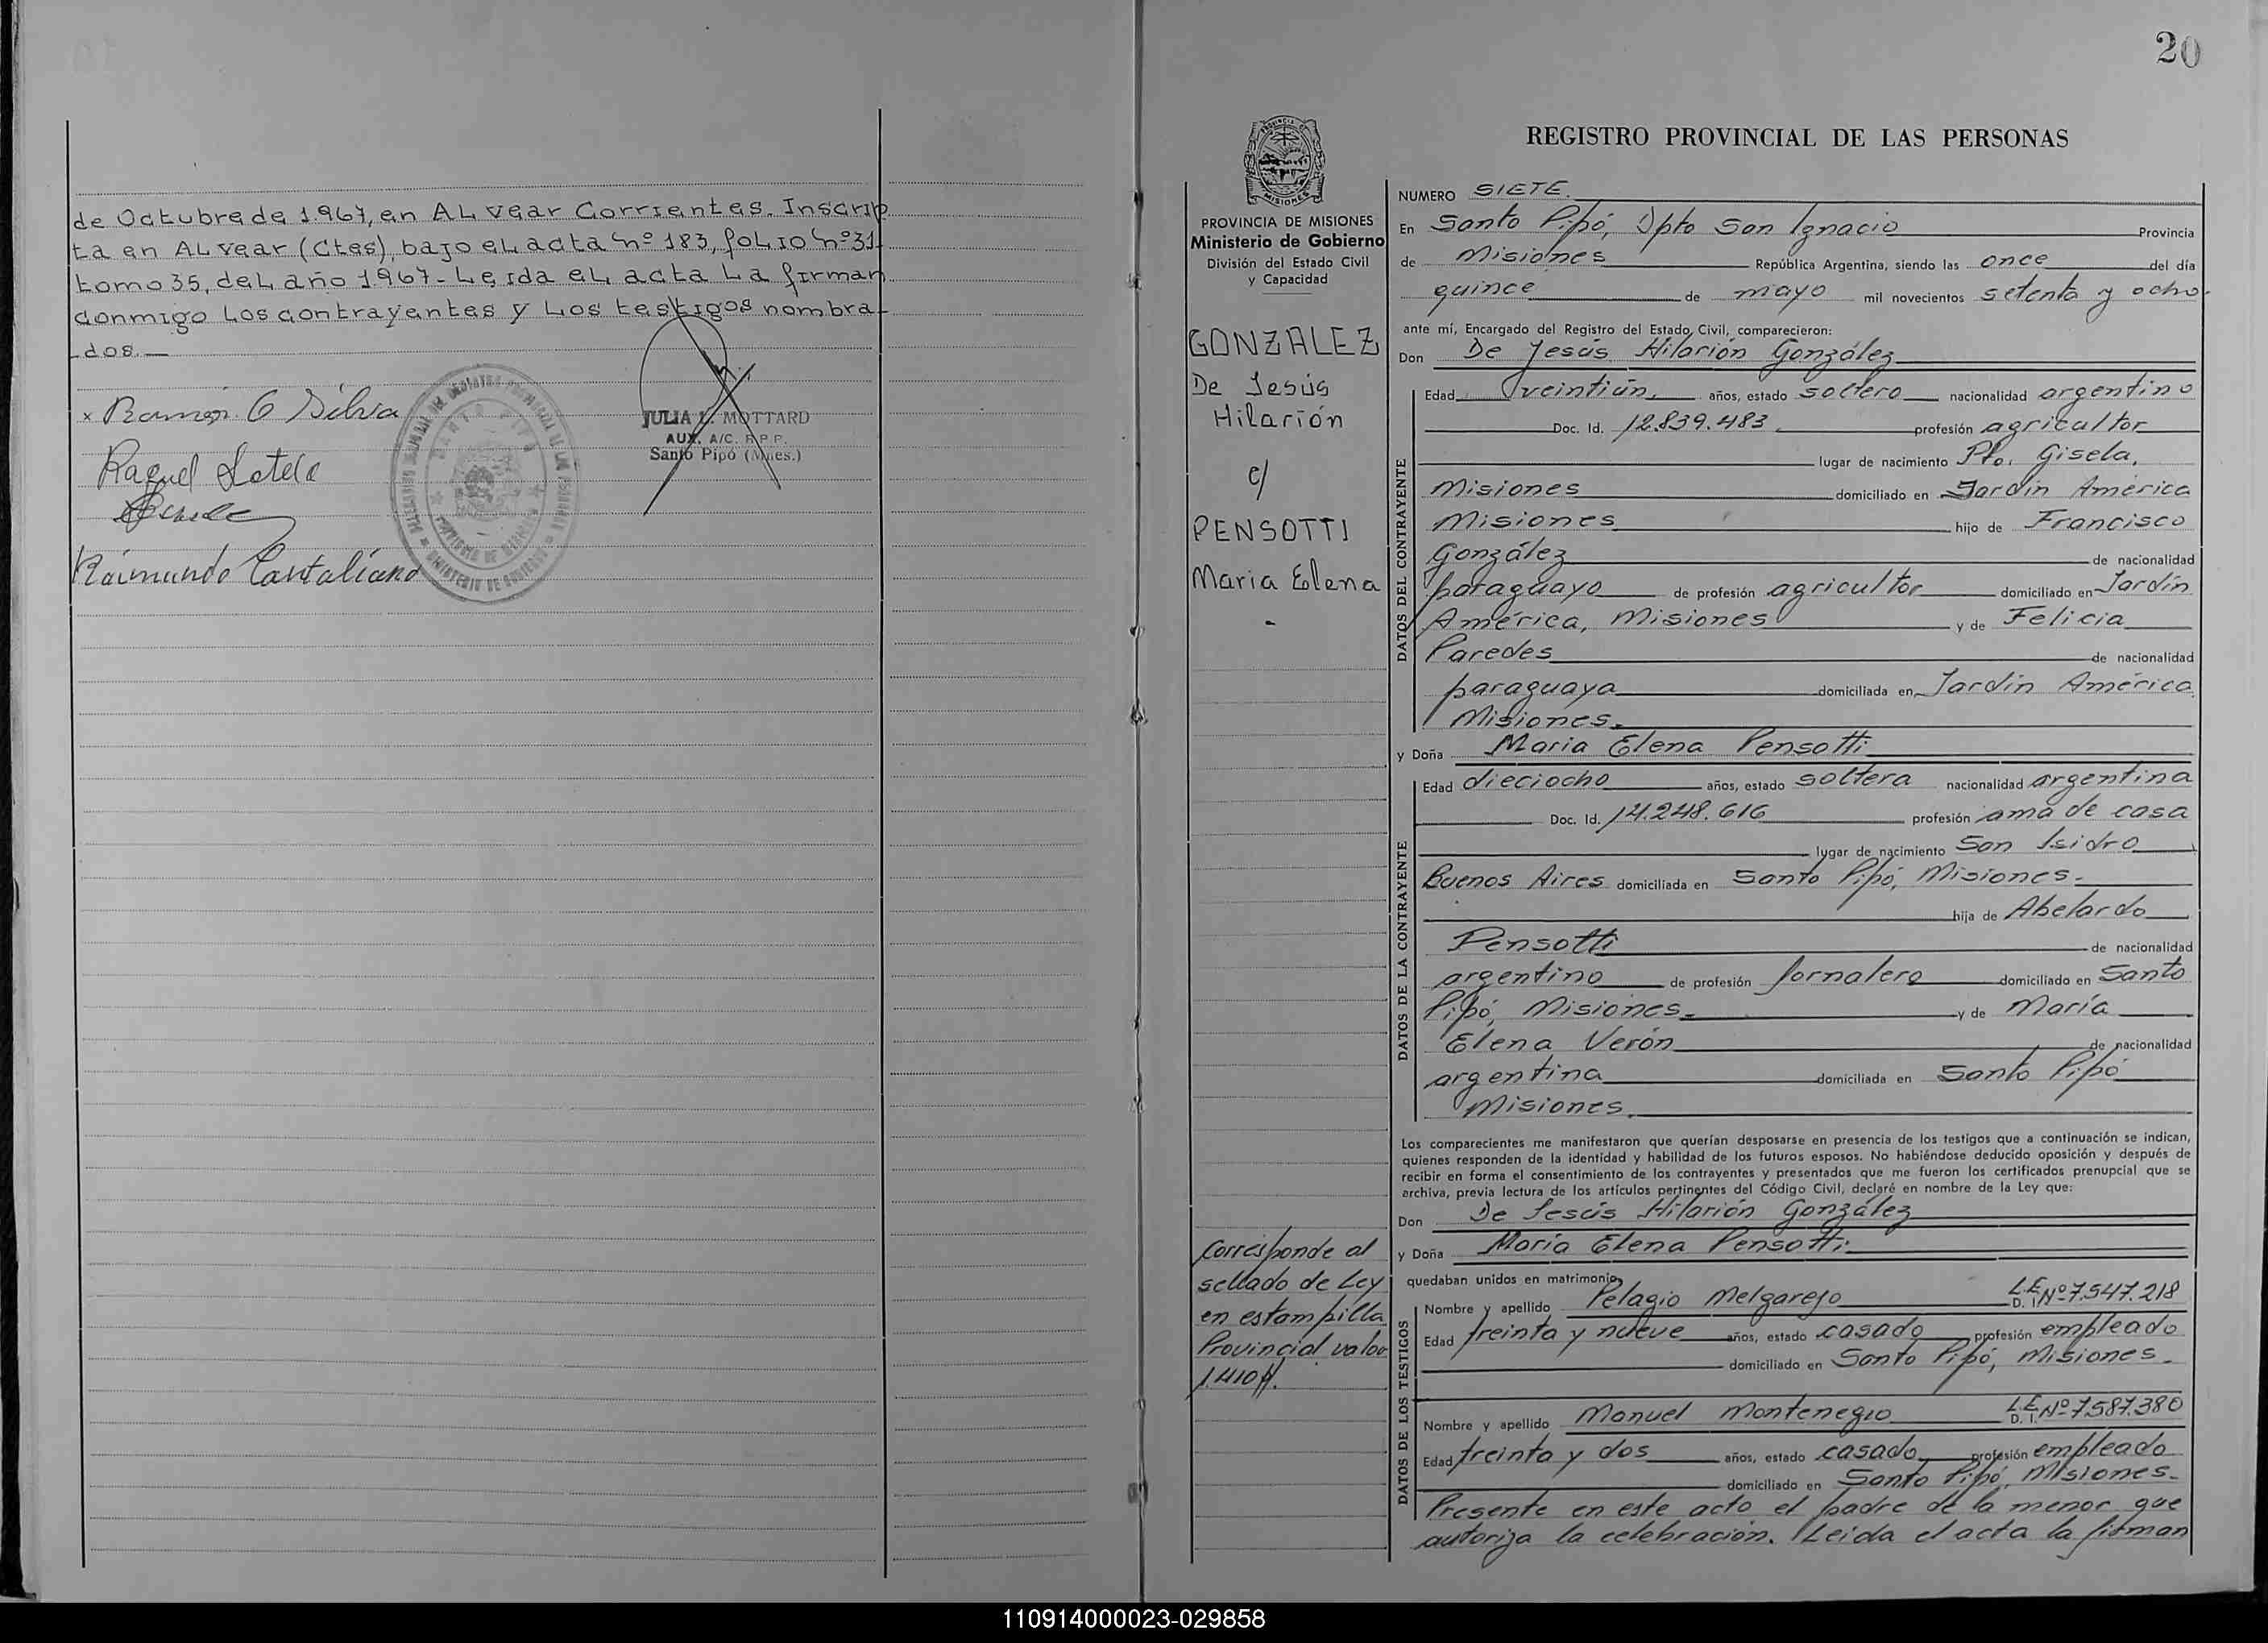 de Octubre de 1.967, en ALvear Corrientes. Inscrip
ta en ALvear (Ctes), bajo eL acta nº 183, foLio nº 31
tomo 35, deL año 1967- Leida eL acta La firman
conmigo Los contrayentes y Los testigos nombra-
dos.—
x Ramon G Silva
JULIA L. MOTTARD
AUX. A/C. R.P.P.
Santo Pipó (Mnes.)
Raquel Sotelo
Raimundo Cantaliano
20
PROVINCIA DE MISIONES
Ministerio de Gobierno
División del Estado Civil
y Capacidad
GONZALEZ
De Jesús
Hilarión
c/
PENSOTTI
Maria Elena
-
Corresponde al
sellado de Ley
en estampilla
Provincial valor
1.410
REGISTRO PROVINCIAL DE LAS PERSONAS
NUMERO SIETE.
En Santo Pipó, Dpto San Ignacio Provincia
de Misiones República Argentina, siendo las once del día
quince de mayo mil novecientos setenta y ocho.
ante mí, Encargado del Registro del Estado Civil, comparecieron:
Don De Jesús Hilarión González
DATOS DEL CONTRAYENTE
Edad veintiún, años, estado soltero nacionalidad argentino
Doc. Id. 12.839.483. profesión agricultor
lugar de nacimiento Pto. Gisela,
Misiones domiciliado en Jardín América
Misiones hijo de Francisco
González de nacionalidad
paraguayo de profesión agricultor domiciliado en Jardín
América, Misiones y de Felicia
Paredes de nacionalidad
paraguaya domiciliada en Jardín América
Misiones.
y Doña Maria Elena Pensotti
DATOS DE LA CONTRAYENTE
Edad dieciocho años, estado soltera nacionalidad argentina
Doc. Id. 14.248.616 profesión ama de casa
lugar de nacimiento San Isidro
Buenos Aires domiciliada en Santo Pipó, Misiones.
hija de Abelardo
Pensotti de nacionalidad
argentino de profesión jornalero domiciliado en Santo
Pipó, Misiones. y de María
Elena Verón de nacionalidad
argentina domiciliada en Santo Pipó
Misiones.
Los comparecientes me manifestaron que querían desposarse en presencia de los testigos que a continuación se indican,
quienes responden de la identidad y habilidad de los futuros esposos. No habiéndose deducido oposición y después de
recibir en forma el consentimiento de los contrayentes y presentados que me fueron los certificados prenupcial que se
archiva, previa lectura de los artículos pertinentes del Código Civil, declaré en nombre de la Ley que:
Don De Jesús Hilarión González
y Doña María Elena Pensotti
quedaban unidos en matrimonio
DATOS DE LOS TESTIGOS
Nombre y apellido Pelagio Melgarejo L.E. D. I. Nº 7.547.218
Edad treinta y nueve años, estado casado profesión empleado
domiciliado en Santo Pipó, Misiones.
Nombre y apellido Manuel Montenegro L.E. D. I. Nº 7.587.380
Edad treinta y dos años, estado casado profesión empleado
domiciliado en Santo Pipó, Misiones.
Presente en este acto el padre de la menor que
autoriza la celebración. Leida el acta la firman
110914000023-029858